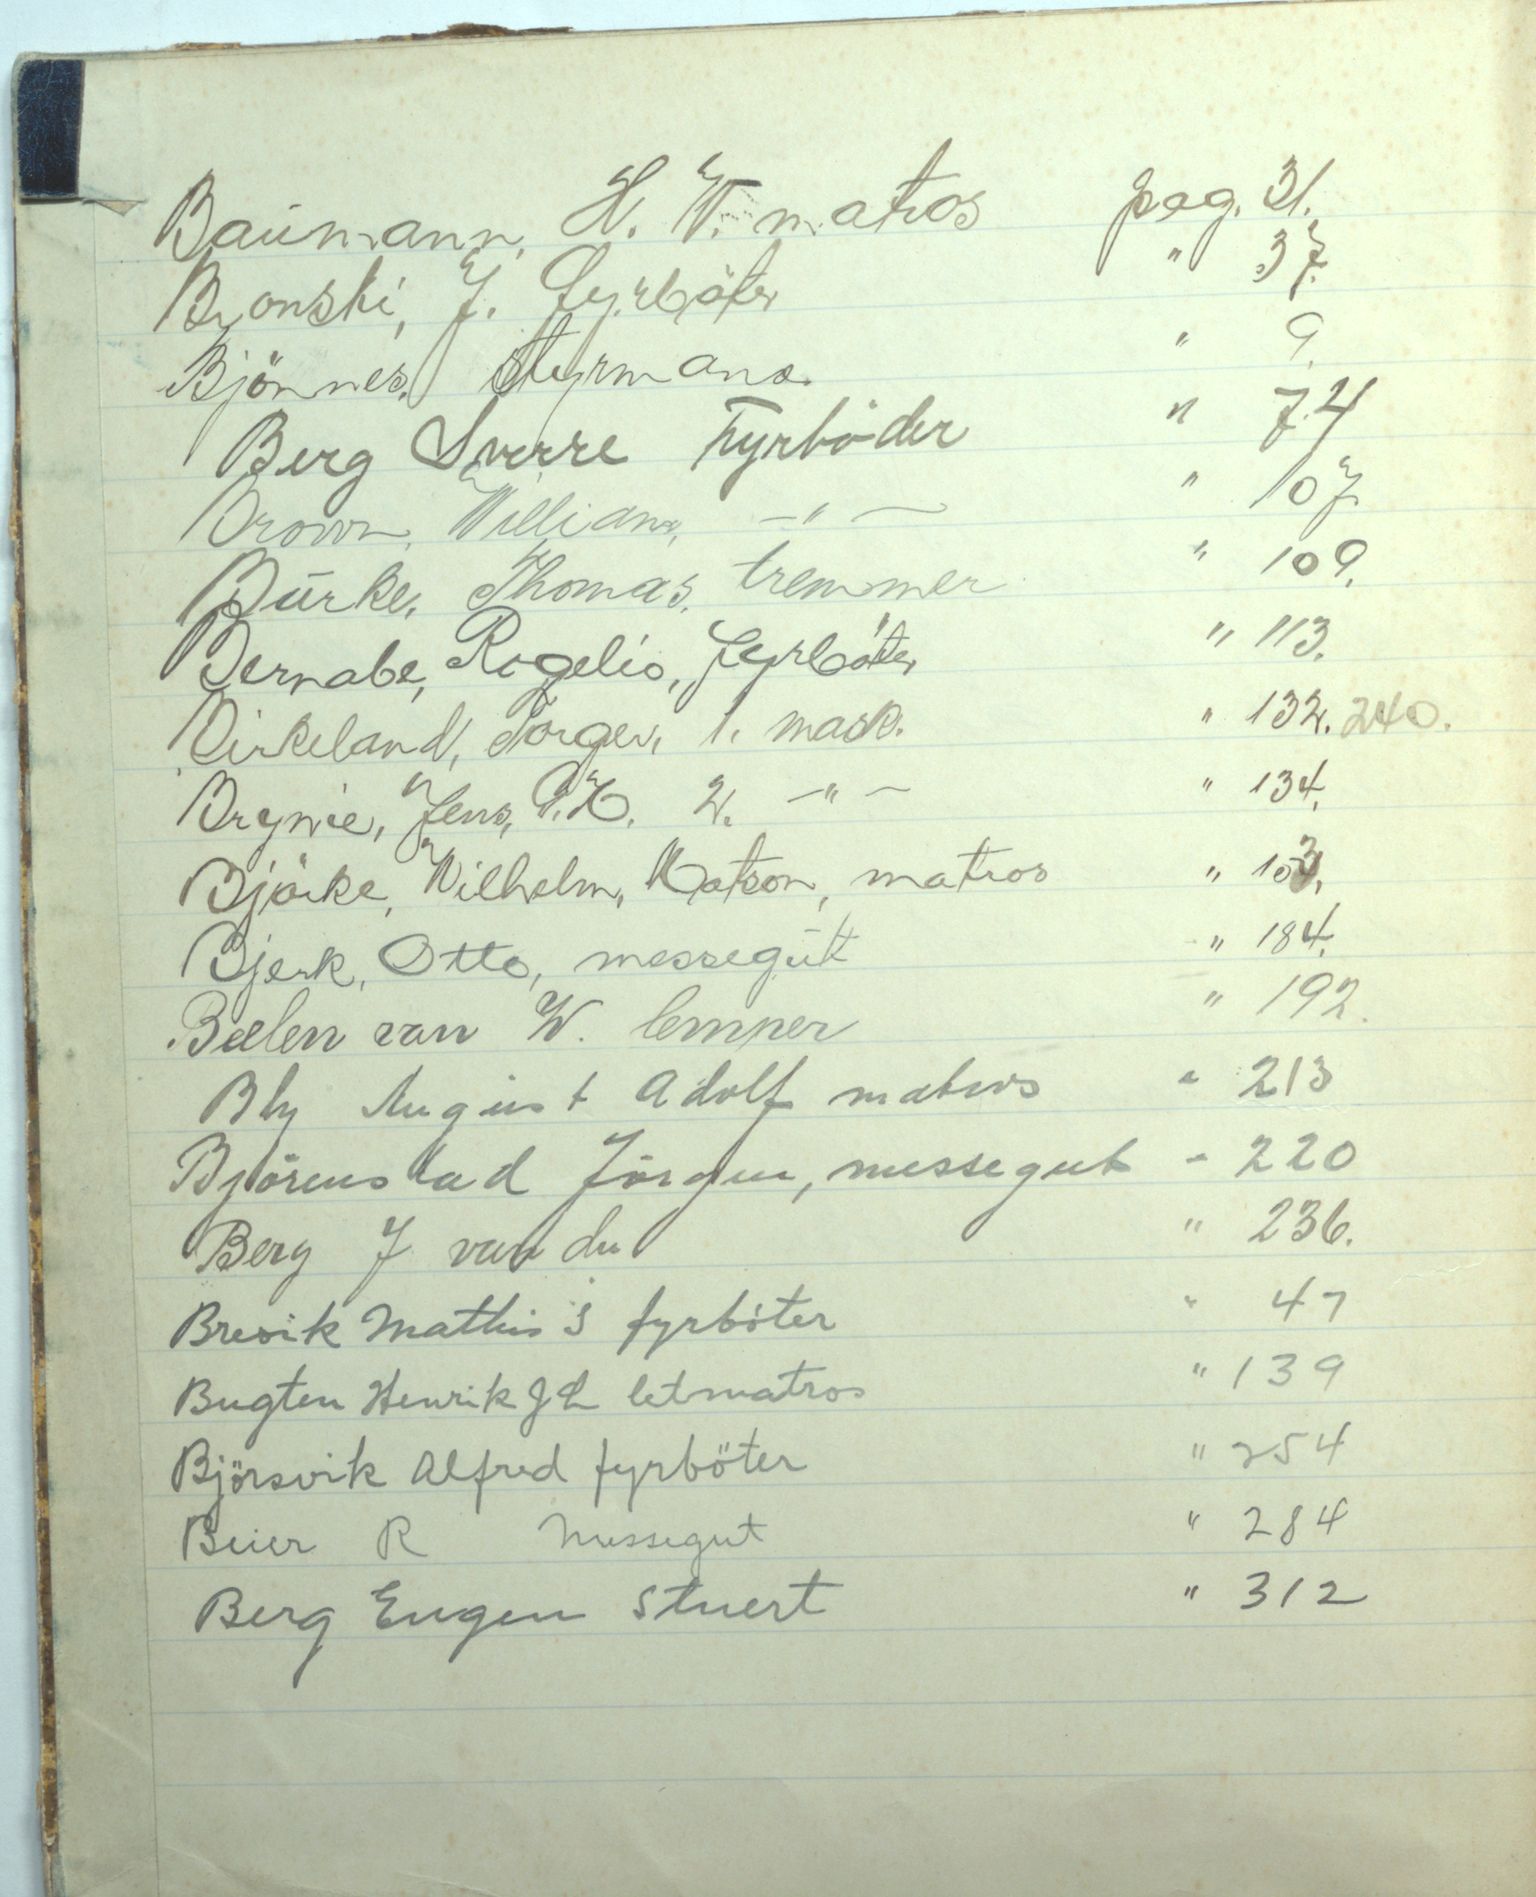 Baumann, H. W. matros pag. 31.
Byonski, J. fyrböter " 37.
Bjönnes, styrmann. " 9.
Berg Sverre Fyrböder " 74
Brown, William, —"— " 107
Burke, Thomas, tremmer " 109.
Bernabe, Rogelio, fyrböter " 113.
Birkeland, Torger, 1. mask. " 132. 240.
Brynie, Jens, P.H. 2. —"— " 134.
Björke, Wilhelm, Watson, matros " 153.
Bjerk, Otto, messegut " 184.
Beelen van W. lemper " 192.
Bly August Adolf matros " 213
Björenstad Jörgen, messegut " 220
Berg J van der " 236.
Brevik Mathis S fyrböter " 47
Bugten Henrik J L letmatros " 139
Björsvik Alfred fyrböter " 254
Beier R Messegut " 284
Berg Eugen Stuert " 312